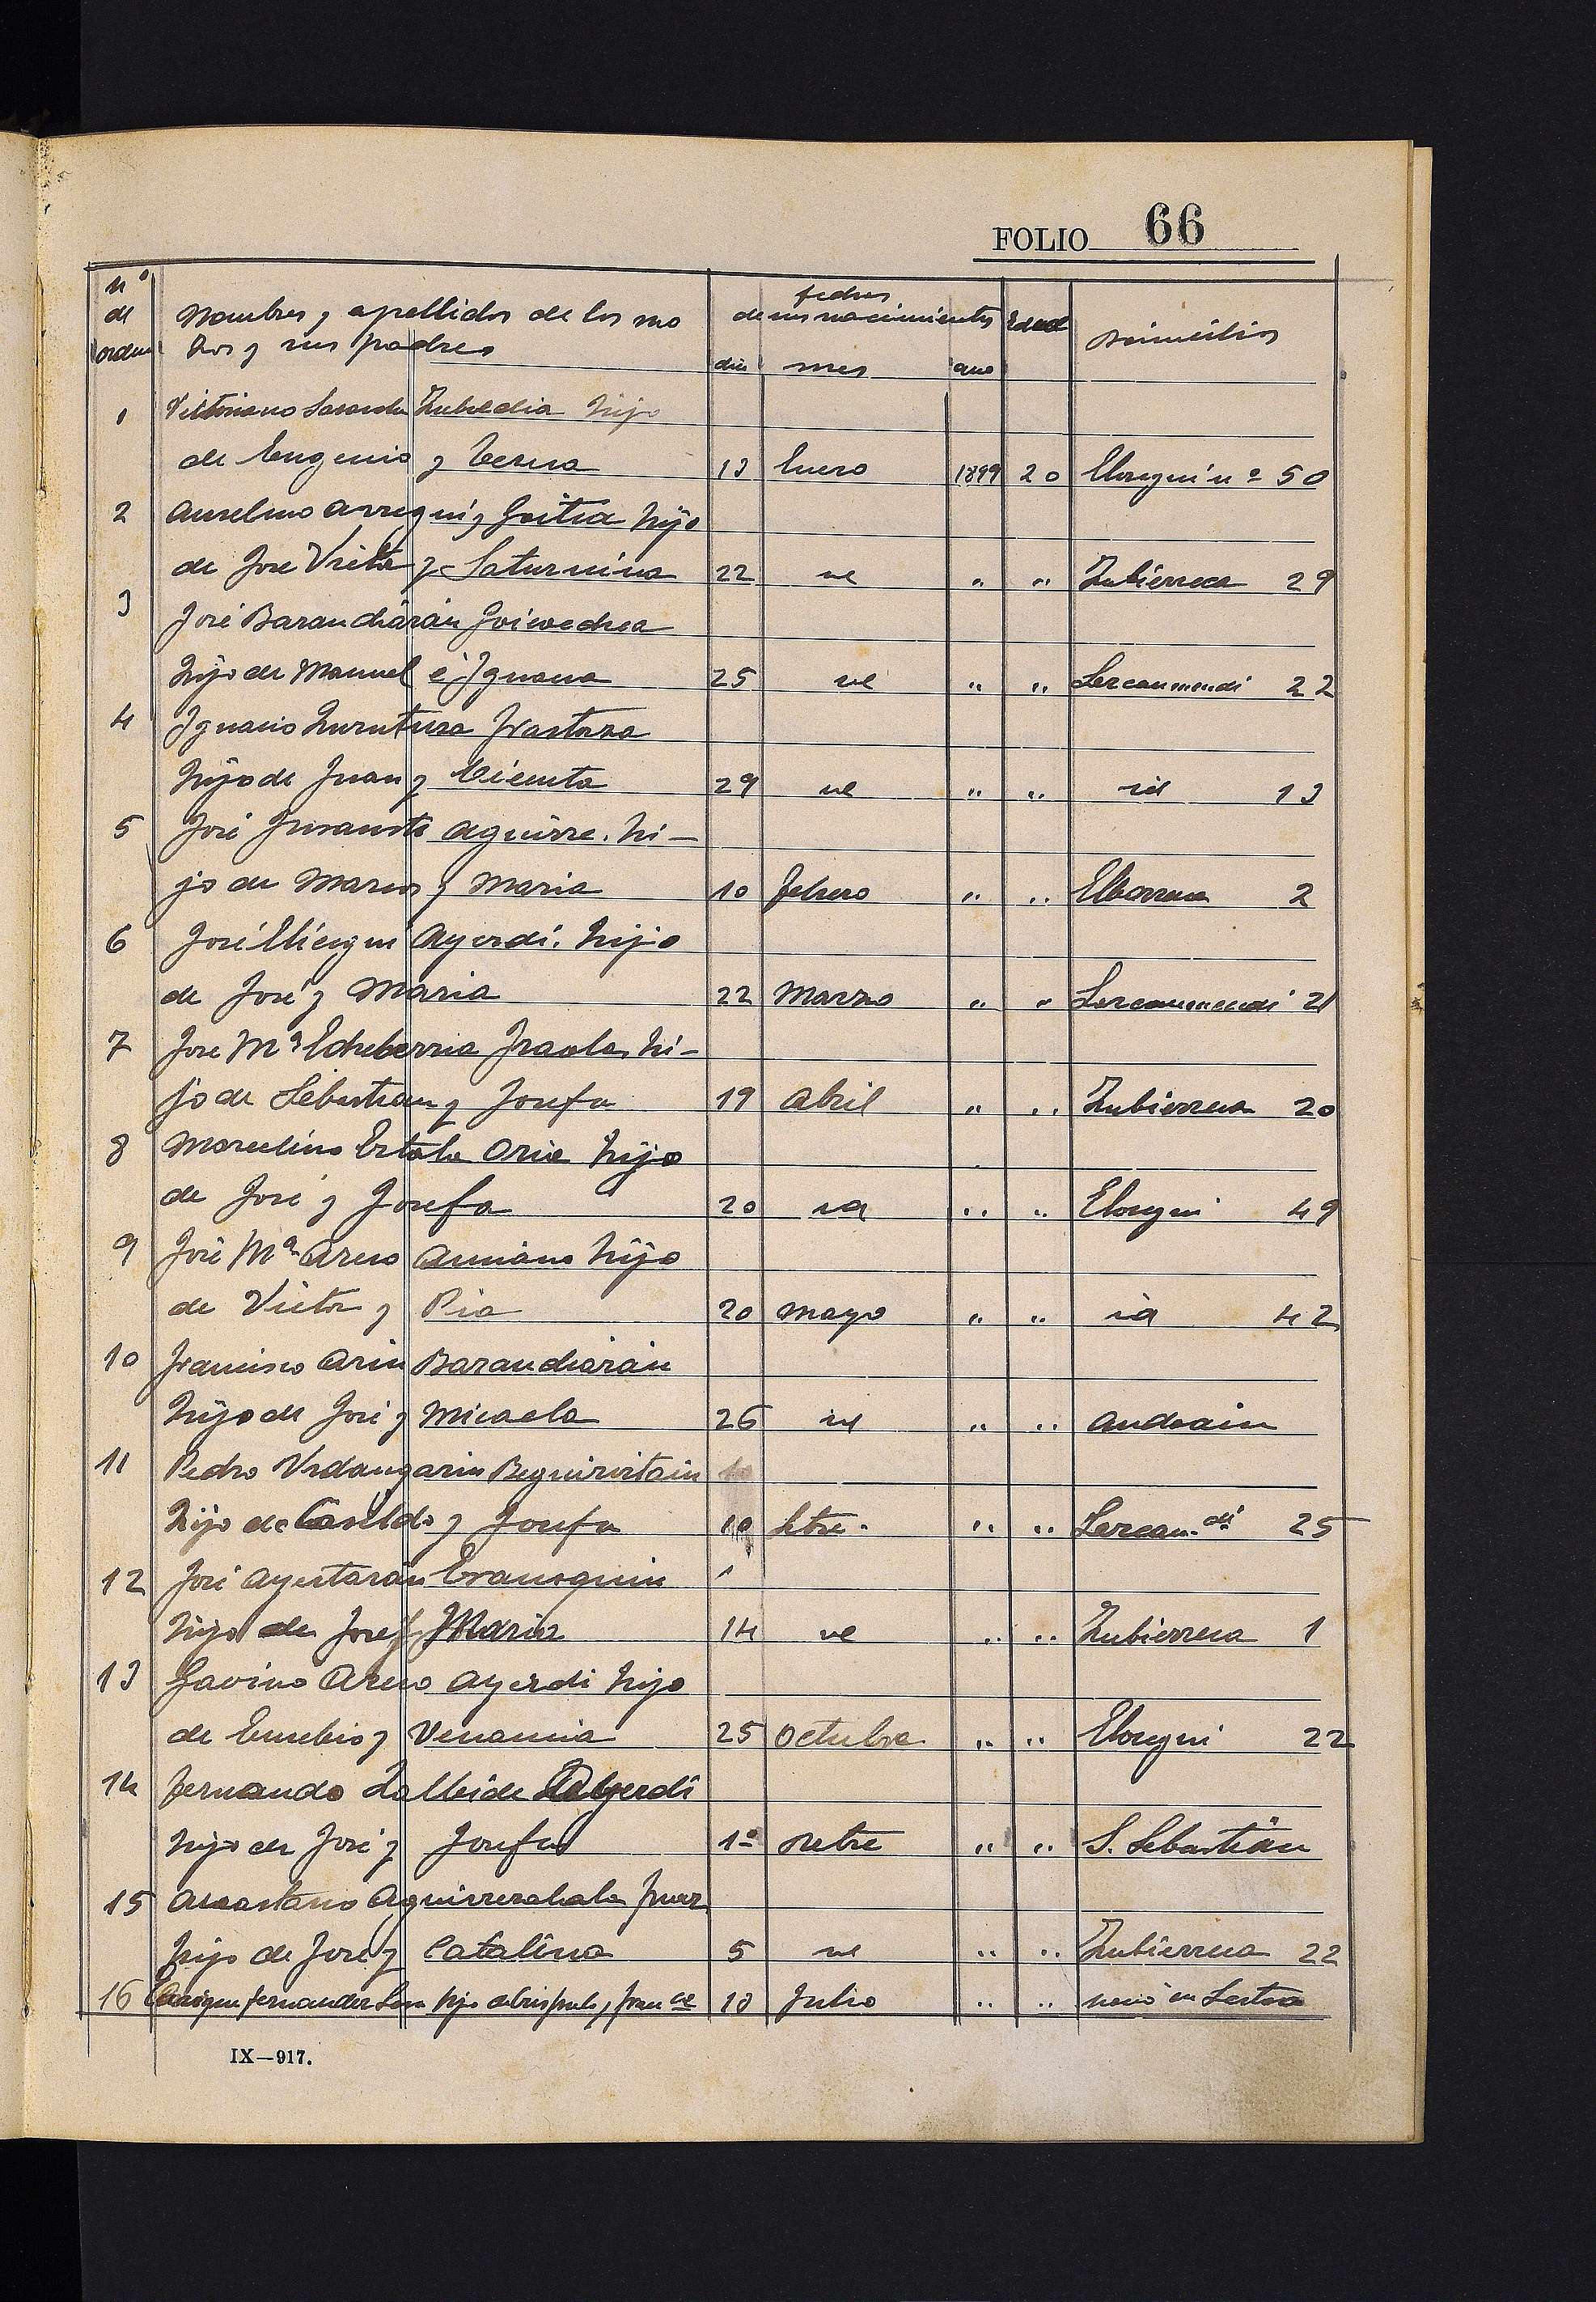 FOLIO 66
nº de orden Nombres y apellidos de los mozos y sus padres fechas de sus nacimientos dia mes año Edad Domicilios
1 Victoriano Zubeldia hijo
de Eugenio y 13 Enero 1899 20 Elosegui nº 50
2 Anselmo Arregui y Goitia hijo
de Jose Victor y Saturnina 22 id " " Zubierreca 29
3 José Barandiarán Goicoechea
hijo de Manuel é Ignacia 25 id " " Larcanmendi 22
4 Ignacio Zurutuza Irastorza
hijo de Juan y Vicenta 29 id " " id 13
5 José Aguirre. hi-
jo de Marcos y Maria 10 febrero " " 2
6 José Ayerdi. hijo
de José y Maria 22 Marzo " " Larcanmendi 21
7 Jose Mª Echeberria Iraola hi-
jo de Sebastian y Josefa 19 Abril " " Zubierreca 20
8 Marcelino Oria hijo
de José y Josefa 20 id " " Elosegui 49
9 José Mª Areso hijo
de Victor y Pia 20 mayo " " id 42
10 Francisco Arin Barandiarán
hijo de José y Micaela 26 id " " Andoain
11 Pedro Urdangarin Beguiristain
hijo de Casildo y Josefa 10 Sbre. " " Larcan.di 25
12 José Ayestarán
hijo de José y Maria 14 id " " Zubierreca 1
13 Gavino Areso Ayerdi hijo
de Eusebio y Venancia 25 Octubre " " Elosegui 22
14 Fernando Ayerdi
hijo de José y Josefa 1º " " S. Sebastián
15 Anastasio Aguirrezabala
hijo de José y Catalina 5 id " " Zubierreca 22
16 Enrique Fernandez hijo de 13 Julio " " nació en
IX—917.